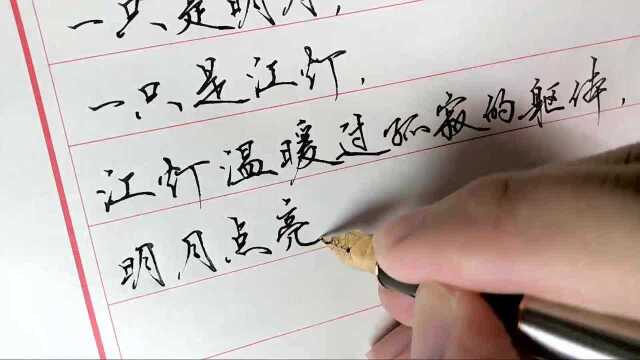 一只是明月，
一只是江灯，
江灯温暖过孤寂的躯体，
明月点亮